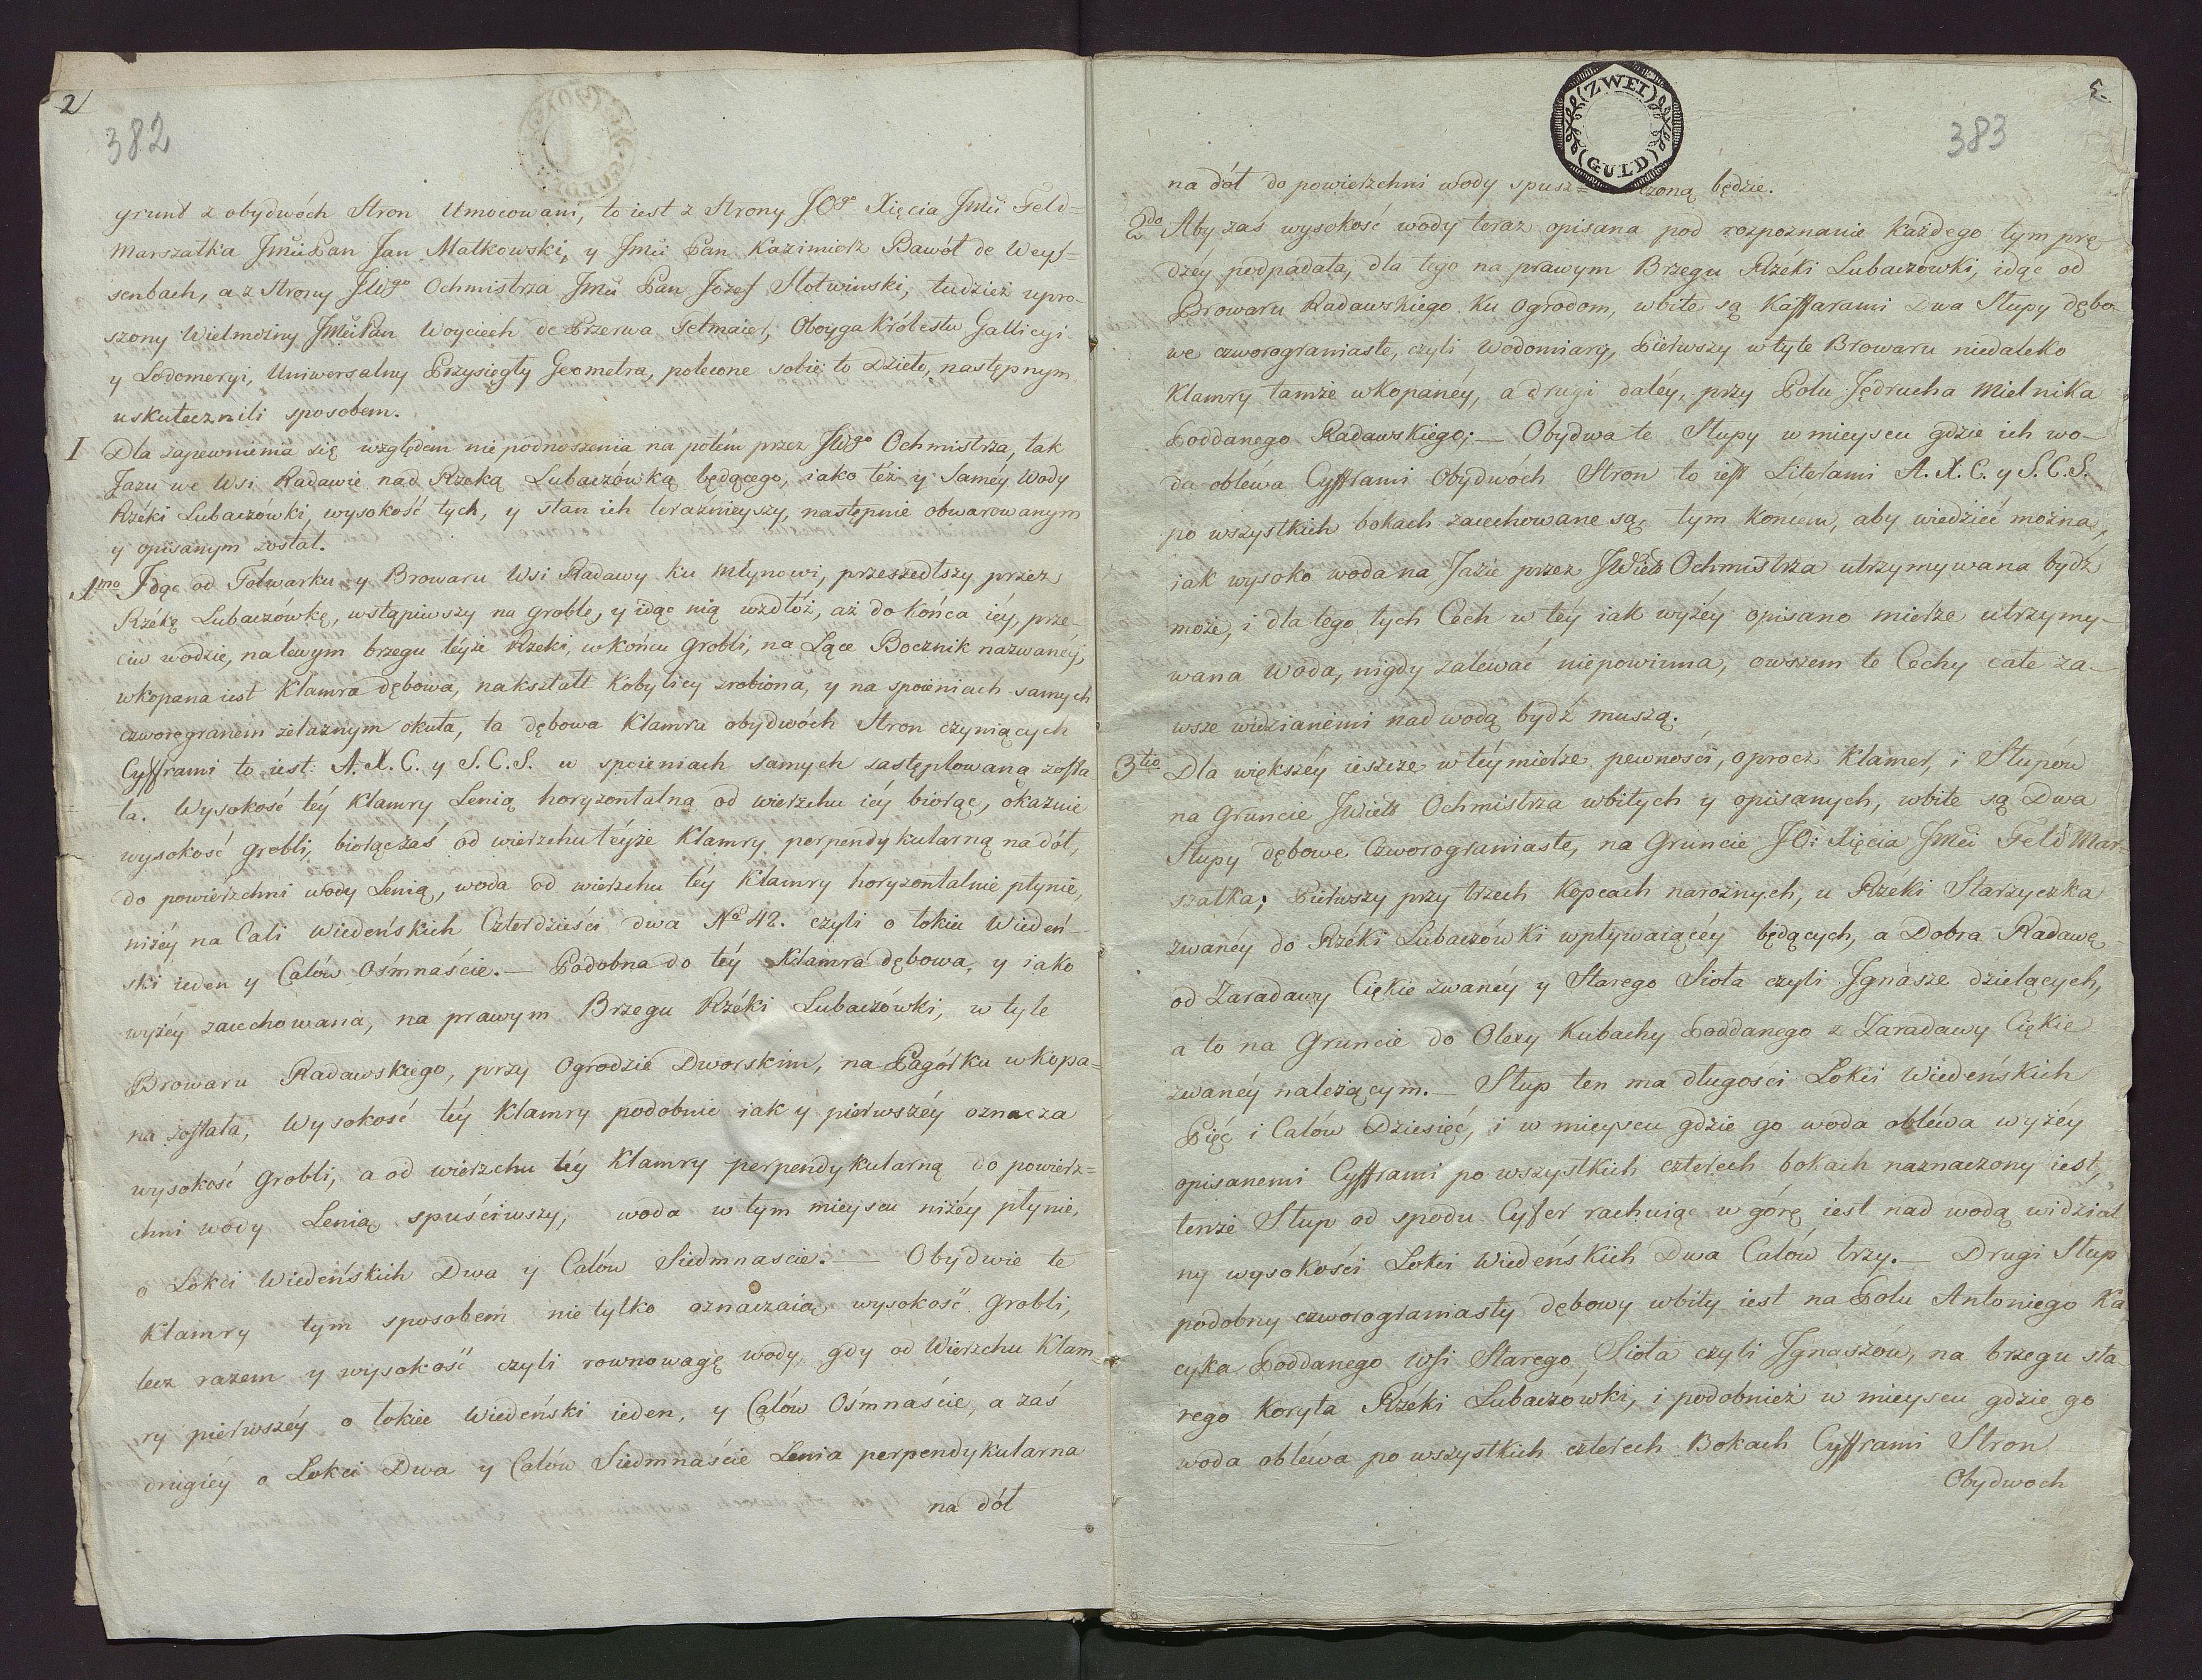 2
382
grunt z obydwóch Stron Umocowani, to iest z Strony JOgo Xięcia Jmći Feld=
Marszałka JmćiPan Jan Małkowski, y Jmći Pan Kazimierz Bawół de Weys=
senbach, a z Strony JWgo Ochmistrza Jmć Pan Józef Słotwinski, tudzież upro=
szony Wielmożny JMćiPan Woyciech de Przerwa Tetmaier, Oboyga Królestw Gallicyi
y Lodomeryi, Uniwersalny Przysięgły Geometra, polecone sobie to Dzieło, następnym
uskutecznili sposobem.
I Dla zapewnienia się względem nie podnoszenia na potém przez JWgo Ochmistrza, tak
Jazu we Wsi Radawie nad Rzeką Lubaczówką będącego, iako téż y Saméy Wody
Rzéki Lubaczówki, wysokość tych, y stan ich teraznieyszy, następnie obwarowanym
y opisanym został.
1mo Idąc od Folwarku y Browaru Wsi Radawy ku Młynowi, przeszedłszy przez
Rzékę Lubaczówkę, wstąpiwszy na groblę, y idąc nią wzdłóż, aż do końca iéy, prze=
ciw wodzie, na lewym brzegu téyże Rzeki, w końcu grobli, na Łące Bocznik nazwanéy,
wkopana iest Klamra dębowa, nakształt Kobylicy zrobiona, y na spoieniach samych
czworogranem żelaznym okuta, ta dębowa Klamra obydwóch Stron czyniących
Cyfframi to iest: A. X. C. y S. C. S. w spoieniach samych zastęplowaną zosta
ła. Wysokość téy Klamry Lenią horyzontalną od wierzchu iéy biorąc, okazuie
wysokość grobli, biorąc zaś od wierzchu téyże Klamry perpendykularną na dół,
do powiérzchni wody Lenią, woda od wierzchu téy Klamry horyzontalnie płynie,
niżéy na Cali Wiedeńskich Czterdzieści dwa No 42. czyli o łokieć Wiedeń=
ski ieden y Calów Ośmnaście.— Podobna do téy Klamra dębowa, y iako
wyżéy zacechowana, na prawym Brzegu Rzéki Lubaczówki, w tyle
Browaru Radawskiego, przy Ogrodzie Dworskim, na Pagórku wkopa=
na została, Wysokość téy Klamry podobnie iak y pierwszéy oznacza
wysokość Grobli, a od wierzchu téy Klamry perpendykularną do powierz=
chni wody Lenią spuściwszy, woda w tym mieyscu niżéy płynie,
o Łokci Wiedeńskich Dwa y Calów Siedmnascie.— Obydwie te
Klamry tym sposobem nie tylko oznaczaią wysokość Grobli,
lecz razem y wysokość czyli rownowagę wody, gdy od Wierzchu Klam
ry pierwszéy o łokieć Wiedeński ieden, y Calów Ośmnaście, a zaś
drugiéy o Łokci Dwa y Calów Siedmnaście Lenia perpendykularna
na dół
ZWEI
GULD
383
na dół do powierzchni wody spusz= czoną będzie.
2do Aby zaś wysokość wody teraz opisana pod rozpoznanie każdego tym prę=
dzéy podpadała, dla tego na prawym Brzegu Rzéki Lubaczówki, idąc od
Browaru Radawskiego ku Ogrodom, wbite są Kaffarami Dwa Słupy dębo=
we czworograniaste, czyli Wodomiary, Pierwszy w tyle Browaru niedaleko
Klamry tamże wkopanéy, a drugi daléy, przy Polu Jędrucha Mielnika
Poddanego Radawskiego;— Obydwa te Słupy w mieyscu gdzie ich wo=
da obléwa Cyfframi Obydwóch Stron to iest Literami A. X. C. y S. C. S.
po wszystkich bokach zacechowane są, tym końcem, aby wiedzieć można,
iak wysoko woda na Jazie przez JWieló Ochmistrza utrzymywana bydź
może, i dla tego tych Cech w téy iak wyżéy opisano mierze utrzymy=
wana Woda, nigdy zaléwać niepowinna, owszem te Cechy całe za=
wsze widzianémi nad wodą bydź muszą.
3tio Dla większéy ieszcze w téy mierze pewności, oprocz Klamer, i Słupów
na Gruncie JWieló Ochmistrza wbitych y opisanych, wbite są Dwa
Słupy dębowe Czworograniaste, na Gruncie JO: Xięcia Jmći Feld Mar=
szałka; Pierwszy przy trzech Kopcach narożnych, u Rzéki Starzyczka
zwanéy do Rzéki Lubaczówki wpływaiącéy będących, a Dobra Radawę
od Zaradawy Ciękie zwanéy y Starego Sioła czyli Ignasze dzielących,
a to na Gruncie do Olexy Kubachy Poddanego z Zaradawy Ciękie
zwanéy należącym.— Słup ten ma długości Łokci Wiedeńskich
Pięć i Calów Dziesięć, i w mieyscu gdzie go woda obléwa wyżéy
opisanemi Cyfframi po wszystkich czterech bokach naznaczony iest,
tenże Słup od spodu Cyfer rachuiąc w górę iest nad wodą widzial
ny wysokości Łokci Wiedeńskich Dwa Calów trzy.— Drugi Słup
podobny czworograniasty dębowy wbity iest na Polu Antoniego Ka
cyka Poddanego Wsi Starego Sioła czyli Ignaszów, na brzegu sta
rego Koryta Rzéki Lubaczówki, i podobnież w mieyscu gdzie go
woda obléwa po wszystkich czterech Bokach Cyfframi Stron
Obydwoch